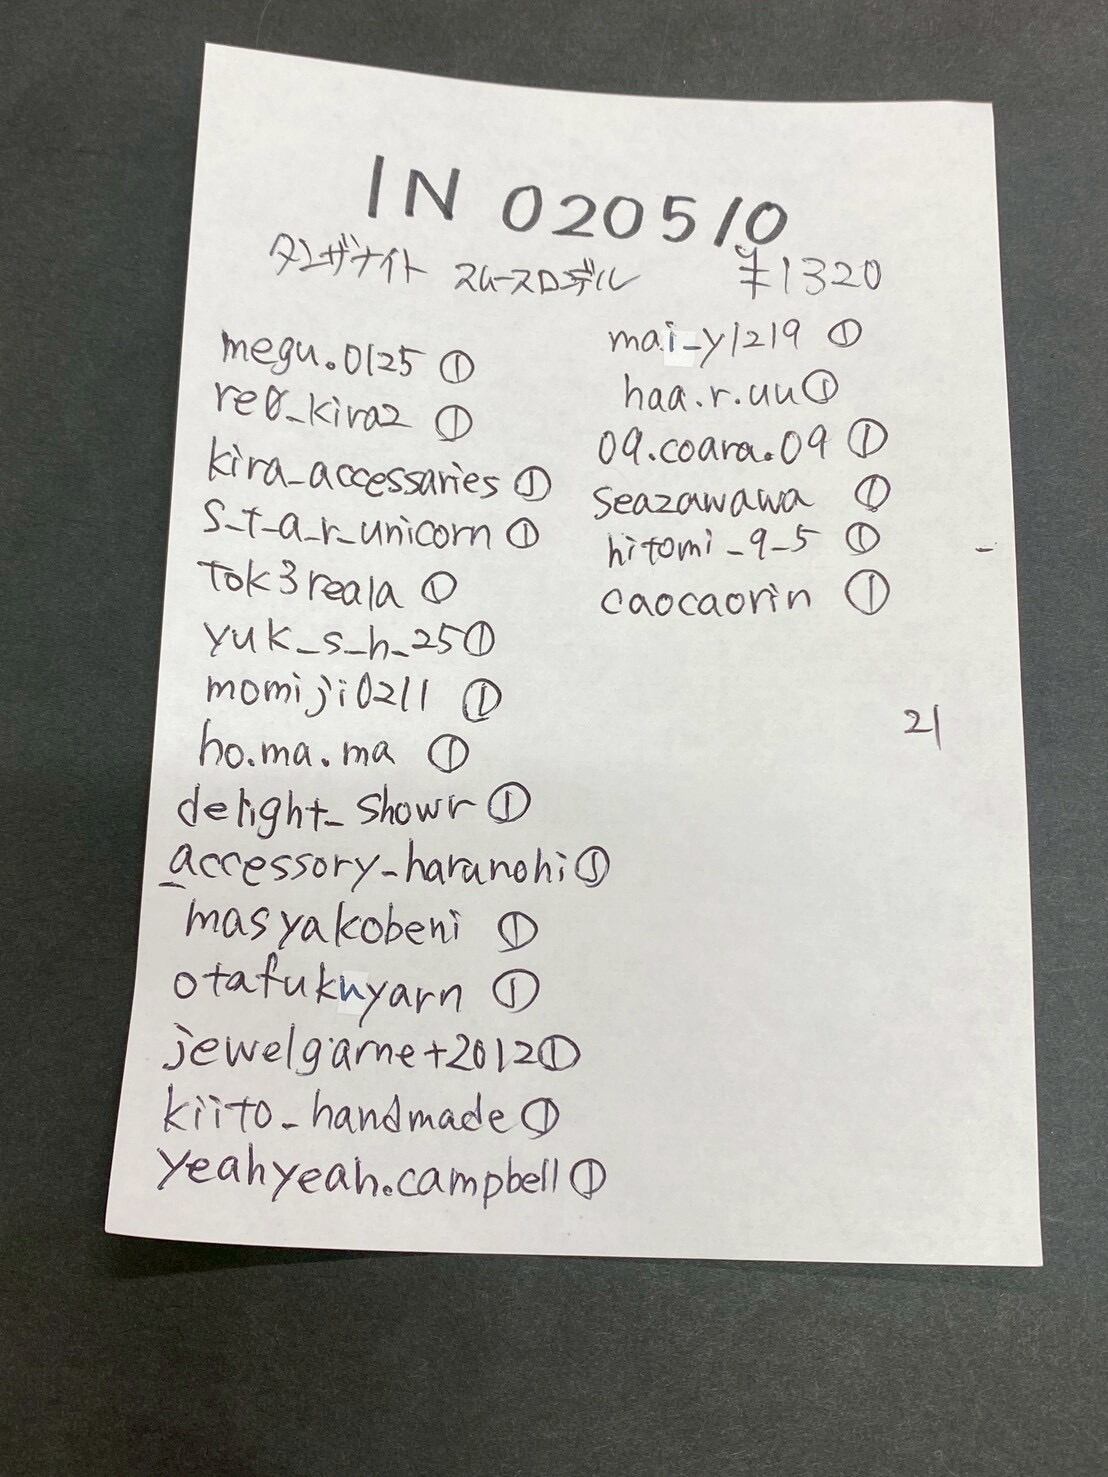 IN 020510
タンザナイト スムースロンデル ¥1320
megu.0125 ①
re0_kira2 ①
kira_accessaries ①
s_t_a_r_unicorn ①
tok3reala ①
yuk_s_h_25 ①
momiji0211 ①
ho.ma.ma ①
delight_showr ①
accessory_haranohi ①
masyakobeni ①
otafukuyarn ①
jewelgarnet2012 ①
kiito_handmade ①
yeahyeah.campbell ①
mai_y1219 ①
haa.r.uu ①
09.coara.09 ①
seazawawa ①
hitomi_9_5 ①
caocaorin ①
21